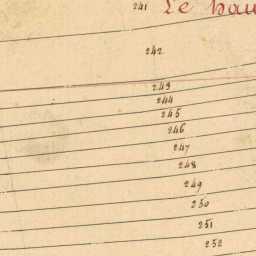 241
Le hau
242
243
244
245
246
247
248
249
250
251
252